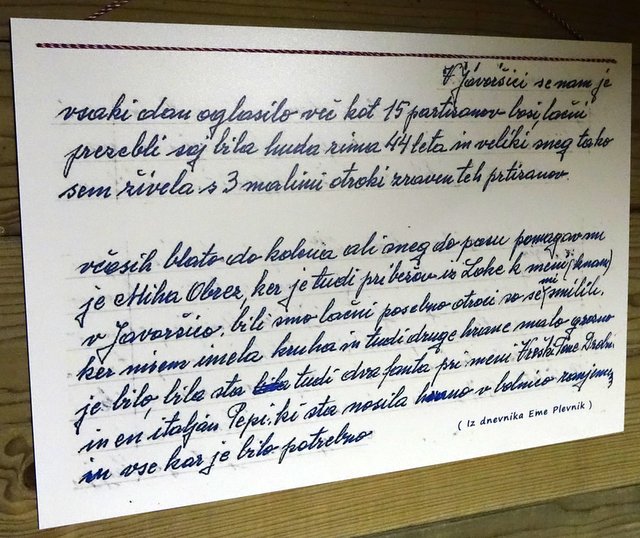 V Javoršici se nam je
vsaki dan oglasilo več kot 15 partizanov bosi, lačni
prezebli saj bila huda zima 44 leta in veliki sneg tako
sem živela s 3 malimi otroki zraven teh prtizanov.
včasih blato do kolena ali sneg do pasu pomagav mi
je Miha Obrez, ker je tudi pribežav iz Loke k meni (k nam)
v Javoršico, bili smo lačni posebno otroci so se mi smilili,
ker nisem imela kruha in tudi druge hrane malo grozno
je bilo, bila sta tudi dva fanta pri meni Vreški Tine Drobni
in en italjan Pepi. ki sta nosila hrano v bolnico ranjencem
in vse kar je bilo potrebno
( Iz dnevnika Eme Plevnik )